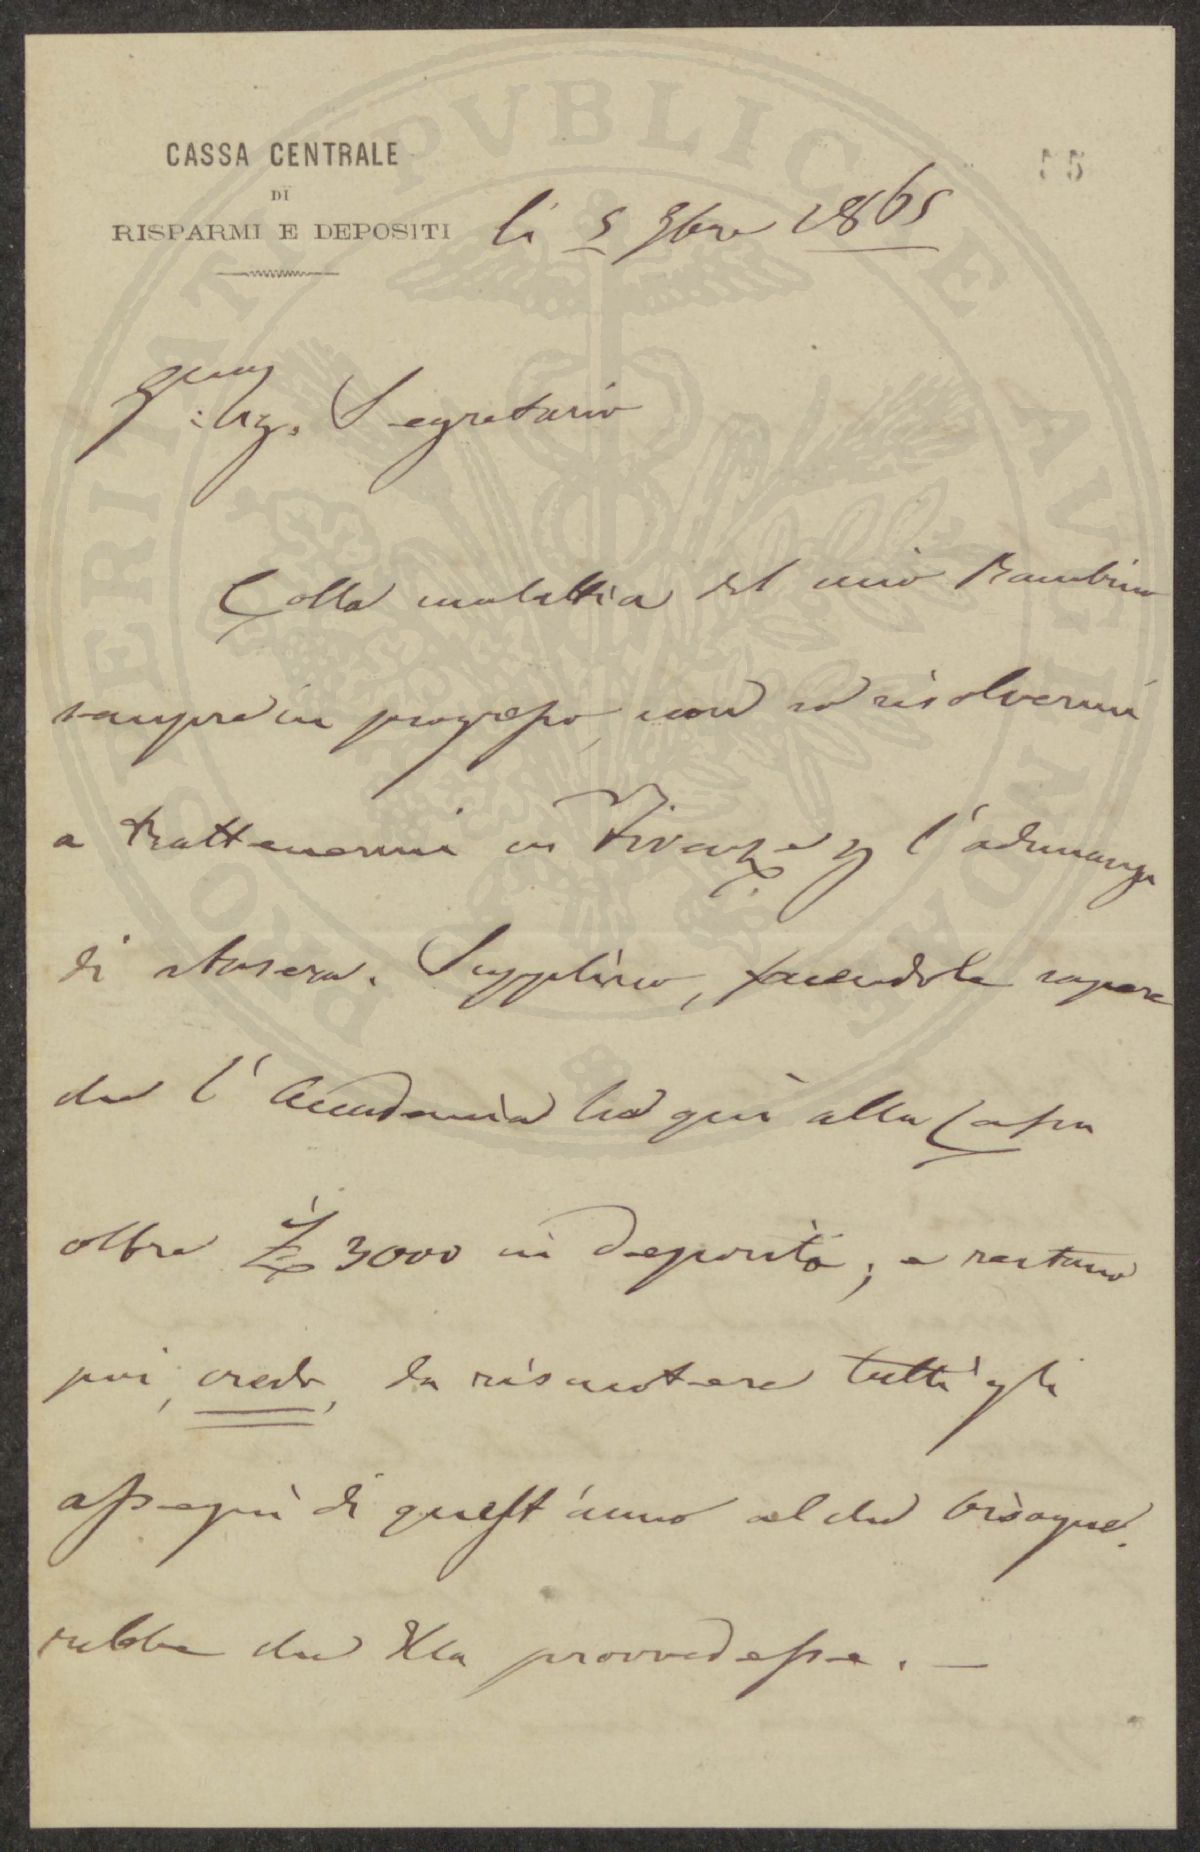 PROSPERITATI PVBLICAE AVGENDAE
55
CASSA CENTRALE
DI
RISPARMI E DEPOSITI
li 5 9bre 1865
Sig. Segretario
Colla malattia del mio Bambino
sempre in progresso, non so risolvermi
a trattenermi in Firenze p l'adunanza
di stasera. Supplisco, facendole sapere
che l'Accademia ha qui alla Cassa
oltre £ 3000 in deposito; e restano
poi, credo, da riscuotere tutti gli
assegni di quest'anno al che bisogne-
rebbe che Ella provvedesse. —